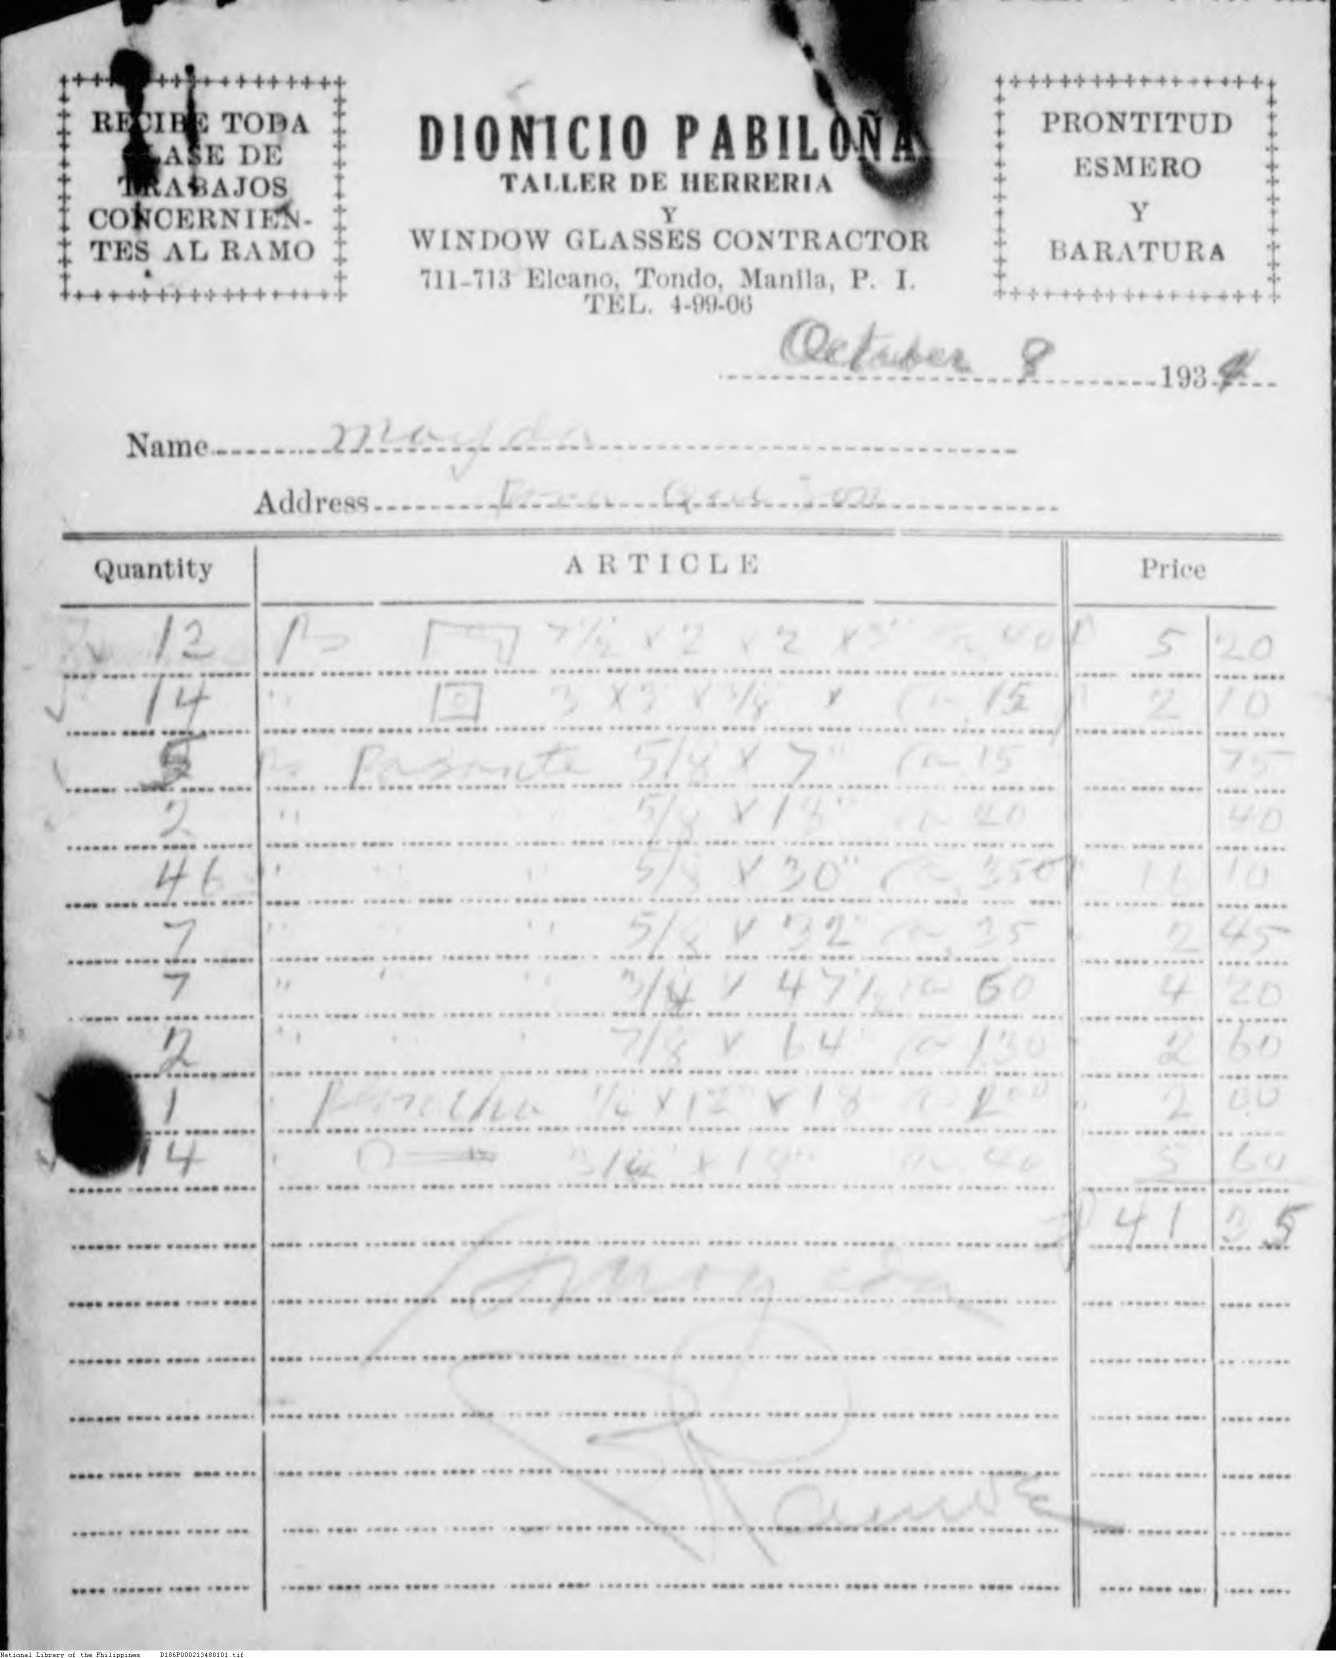 RECIBE TODA
CLASE DE
TRABAJOS
CONCERNIEN-
TES AL RAMO
DIONICIO PABILOÑA
TALLER DE HERRERIA
Y
WINDOW GLASSES CONTRACTOR
711-713 Elcano, Tondo, Manila, P. I.
TEL. 4-99-06
PRONTITUD
ESMERO
Y
BARATURA
October 8 1934
Name
Address
Quantity ARTICLE Price
12 7 1/2 x 2 x 2 x 40 5 20
14 " 3 x 3 x 3/8 x 15 2 10
5 Pasante 5/8 x 7" 15 75
2 " 5/8 x 18" 40 40
46 " " " 5/8 x 30" 350 16 10
7 " " " 5/8 x 32" 35 2 45
7 " " " 3/4 x 47 1/2 60 4 20
2 " " " 7/8 x 64" 130 2 60
1 " 1/2 x 12" x 18 2 00
14 " 3/4" x 18" 40 5 60
41 35
National Library of the Philippines D186P000213480101.tif